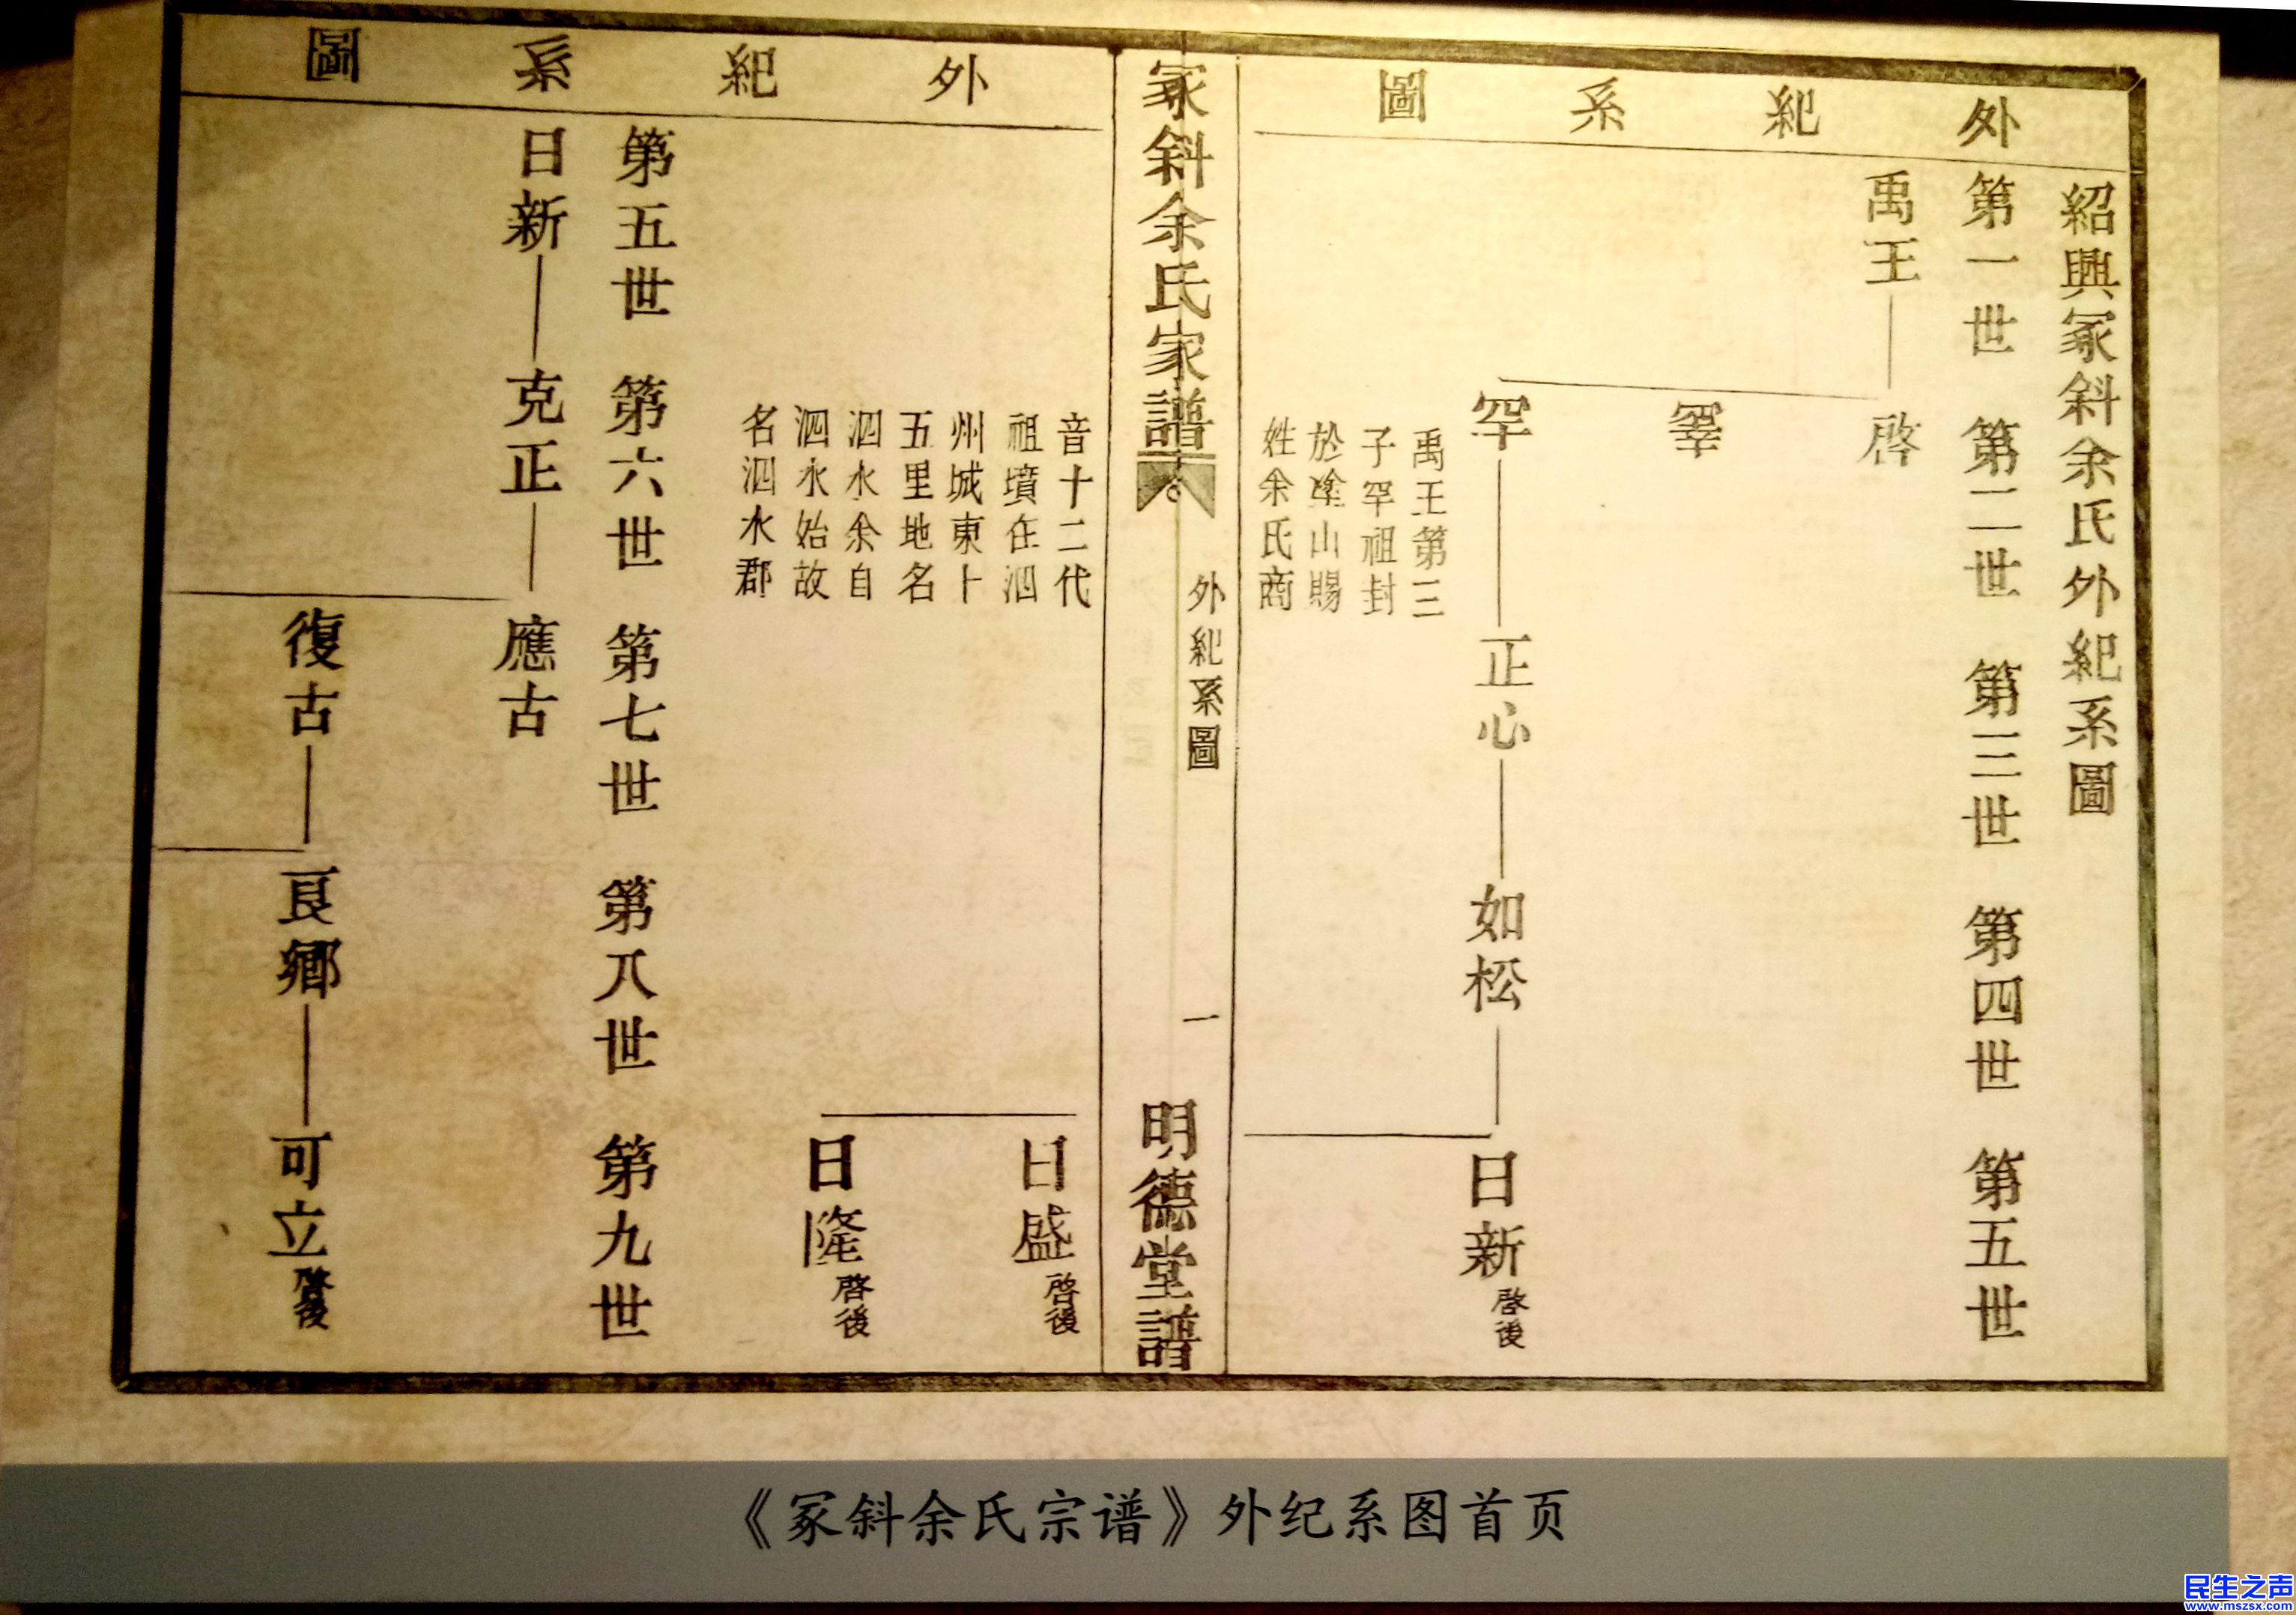 外紀系圖
紹興冢斜余氏外紀系圖
第一世 第二世 第三世 第四世 第五世
禹王 啓
罕 正心 如松 日新 啓後
禹王第三
子罕祖封
於塗山賜
姓余氏商
冢斜余氏家譜 外紀系圖 一 明德堂譜
外紀系圖
音十二代
祖墳在泗
州城東十
五里地名
泗水余自
泗水始故
名泗水郡
日盛 啓後
日隆 啓後
第五世 第六世 第七世 第八世 第九世
日新 克正 應古
復古 良鄉 可立 啓後
《冢斜余氏宗谱》外纪系图首页
民生之声
www.mszsx.com